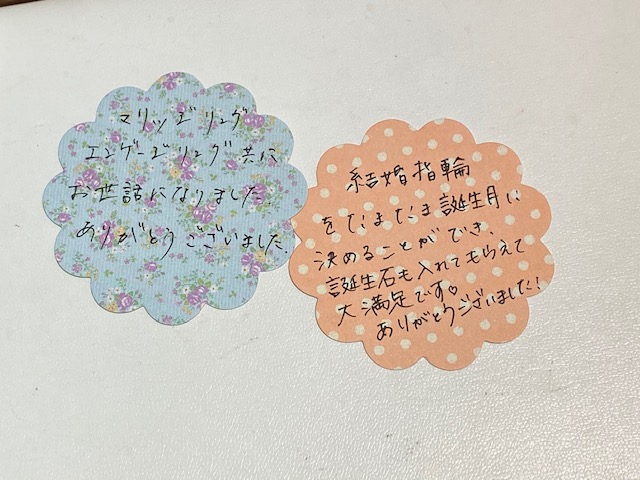 マリッジリング
エンゲージリング共に
お世話になりました。
ありがとうございました。
結婚指輪
をたまたま誕生月に
決めることができ、
誕生石も入れてもらえて
大満足です♡
ありがとうございました!